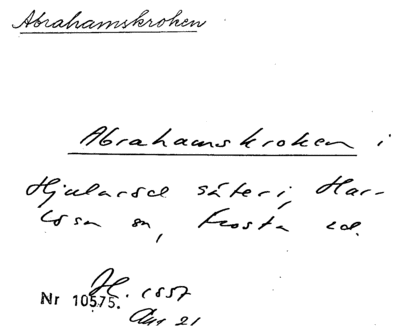 Abrahamskroken
Abrahamskroken i
Hjularöd säteri, Har-
lösa sn, Frosta hd.
H. 1557
Nr 10575.